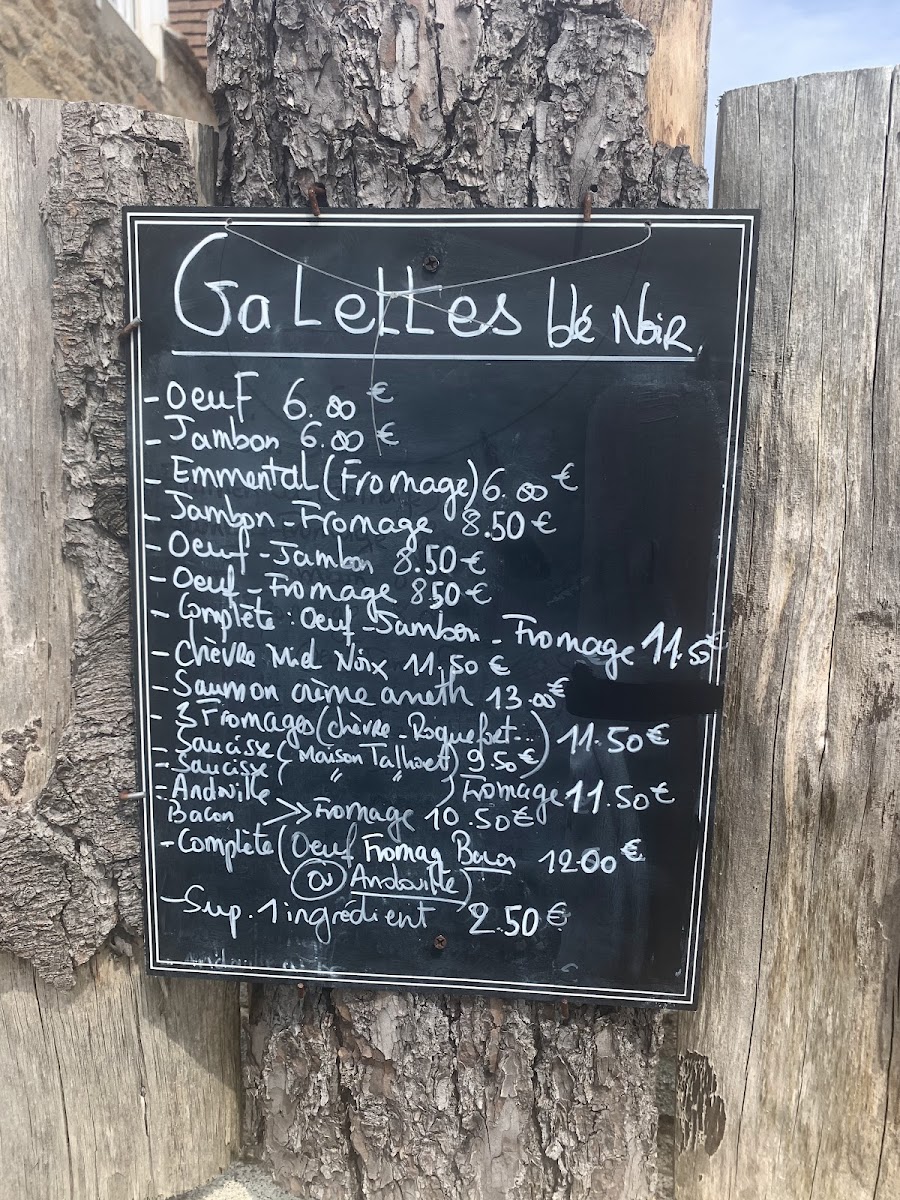 GaLettes blé Noir
- Oeuf 6.00 €
- Jambon 6.00 €
- Emmental (Fromage) 6.00 €
- Jambon - Fromage 8.50 €
- Oeuf - Jambon 8.50 €
- Oeuf - Fromage 8 50 €
- Complète : Oeuf - Jambon - Fromage 11.50 €
- Chèvre Miel Noix 11.50 €
- Saumon crème aneth 13.00 €
- 3 Fromages (chèvre - Roquefort...) 11.50 €
- Saucisse (Maison Talhouet) 9.50 €
- Saucisse ( " " ) Fromage 11.50 €
- Andouille
Bacon >> Fromage 10.50 €
- Complète (Oeuf Fromag Bacon 12.00 €
ou Andouille)
- Sup. 1 ingrédient 2.50 €